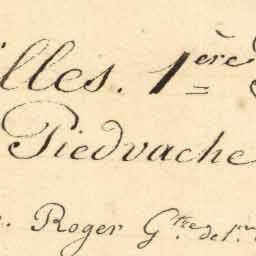 illes. 1ère
Piedvache
Roger Gtre de 1.